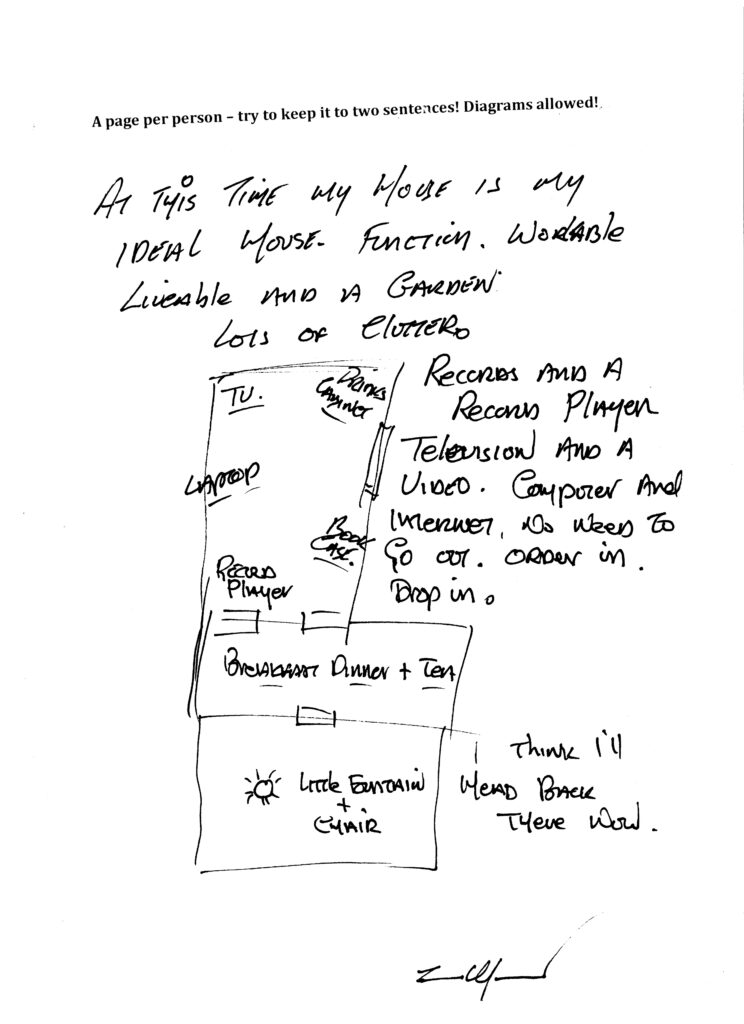 A page per person – try to keep it to two sentences! Diagrams allowed!
AT THIS TIME MY HOUSE IS MY
IDEAL HOUSE. FUNCTION. WORKABLE
LIVEABLE AND A GARDEN
LOTS OF CLUTTER.
TV.
DRINKS
CABINET
LAPTOP
BOOK
CASE.
RECORD
PLAYER
RECORDS AND A
RECORD PLAYER
TELEVISION AND A
VIDEO. COMPUTER AND
INTERNET, NO NEED TO
GO OUT. ORDER IN.
DROP IN.
BREAKFAST DINNER + TEA
LITTLE FOUNTAIN
+
CHAIR
I THINK I'll
HEAD BACK
THERE NOW.